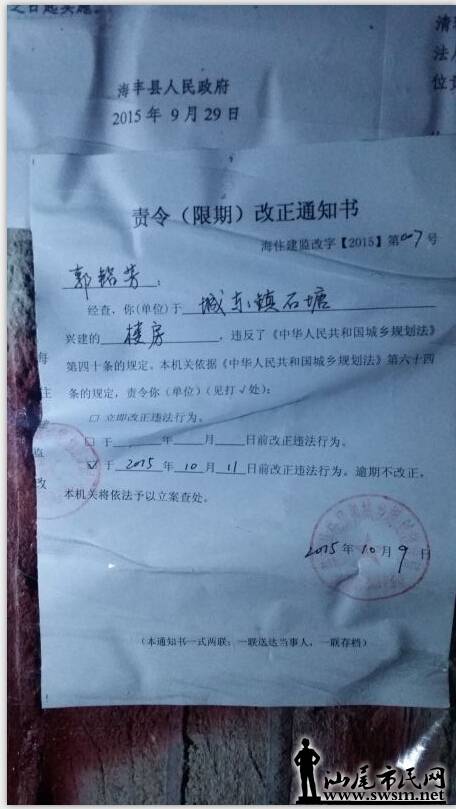 之日起实施。
海丰县人民政府
2015年9月29日
清
法人
位责
责令（限期）改正通知书
海住建监改字【2015】第007号
郭铭芳：
经查，你(单位)于 城东镇石塘
兴建的 楼房 ，违反了《中华人民共和国城乡规划法》
第四十条的规定。本机关依据《中华人民共和国城乡规划法》第六十四
条的规定，责令你（单位）（见打√处）：
□ 立即改正违法行为。
□ 于 年 月 日前改正违法行为。
☑ 于 2015 年 10 月 11 日前改正违法行为。逾期不改正，
本机关将依法予以立案查处。
海
住
建
监
改
2015年10月9日
（本通知书一式两联：一联送达当事人，一联存档）
汕尾市民网
www.swsm.net